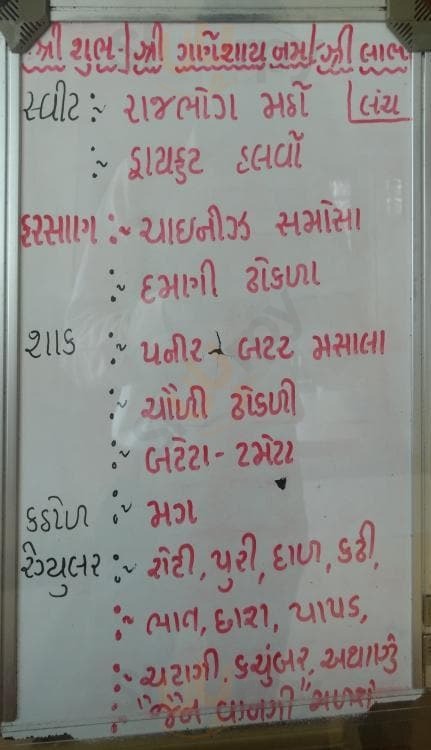 શ્રી શુભ | શ્રી ગણેશાય નમઃ | શ્રી લાભ
સ્વીટ :~ રાજભોગ મઠ્ઠો |લંચ
:~ ડ્રાયફ્રુટ હલવો
ફરસાણ :~ ચાઇનીઝ સમોસા
:~ દમણી ઢોકળા
શાક :~ પનીર બટર મસાલા
:~ ચોળી ઢોકળી
:~ બટેટા - ટમેટા
કઠોળ :~ મગ
રેગ્યુલર :~ રોટી, પુરી, દાળ, કઢી,
:~ ભાત, છાશ, પાપડ,
:~ ચટણી, કચુંબર, અથાણું
"જૈન વાનગી" મળશે